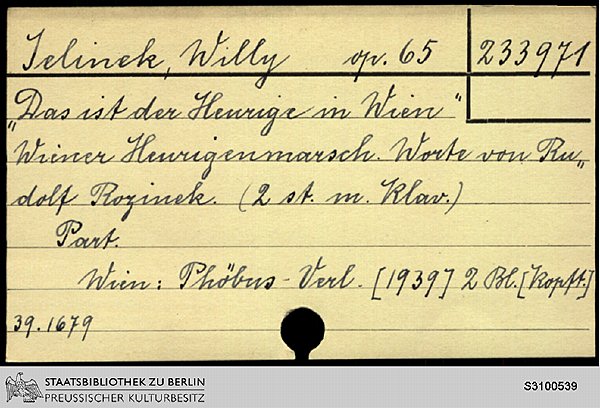 Jelinek, Willy op. 65 233971
„Das ist der Heurige in Wien“
Wiener Heurigenmarsch. Worte von Ru„
dolf Rozinek. (2 st. m. Klav.)
Part.
Wien: Phöbus-Verl. [1939] 2 Bl. [Kopft.]
39.1679
STAATSBIBLIOTHEK ZU BERLIN
PREUSSISCHER KULTURBESITZ
S3100539